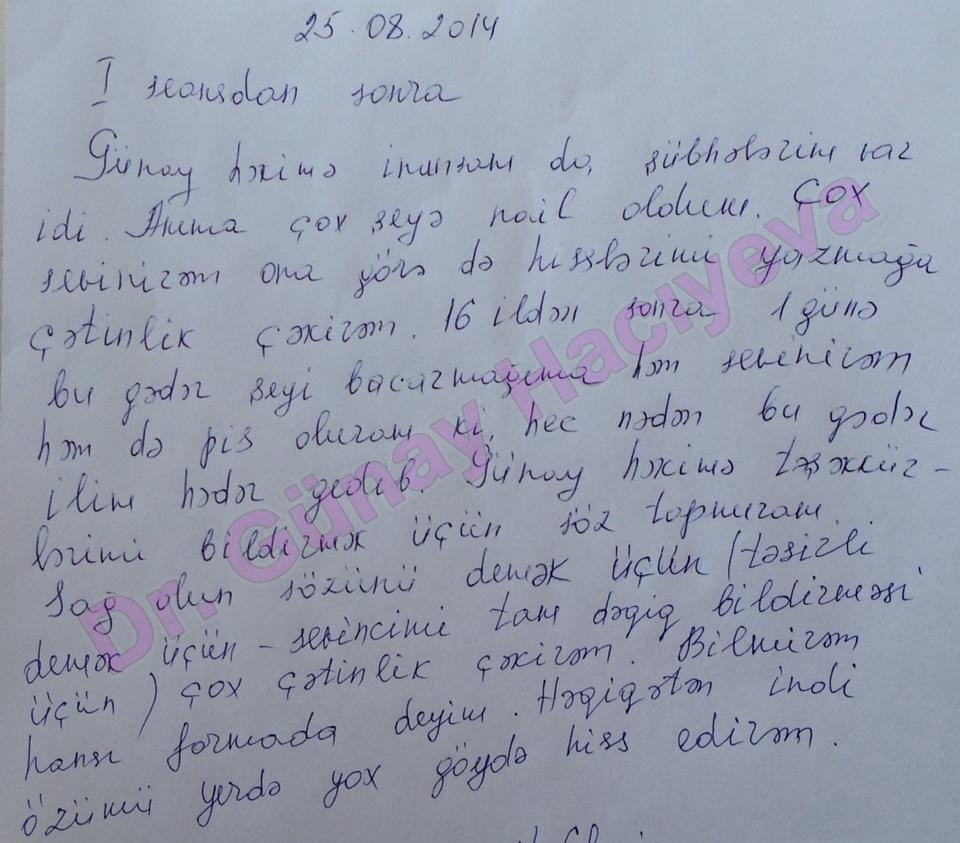 25.08.2014
I seansdan sonra
Günay həkimə inansam da, şübhələrim var
idi. Amma çox şeyə nail oldum. Çox
sevinirəm ona görə də hisslərimi yazmağa
çətinlik çəkirəm. 16 ildən sonra 1 günə
bu qədər şeyi bacarmağıma həm sevinirəm
həm də pis oluram ki, hec nədən bu qədər
ilim hədər gedib. Günay həkimə təşəkkür-
lərimi bildirmək üçün söz tapmıram.
Sağ olun sözünü demək üçün (təsirli
demək üçün - sevincimi tam dəqiq bildirməsi
üçün) çox çətinlik çəkirəm. Bilmirəm
hansı formada deyim. Həqiqətən indi
özümü yerdə yox göydə hiss edirəm.
Dr. Günay Hacıyeva